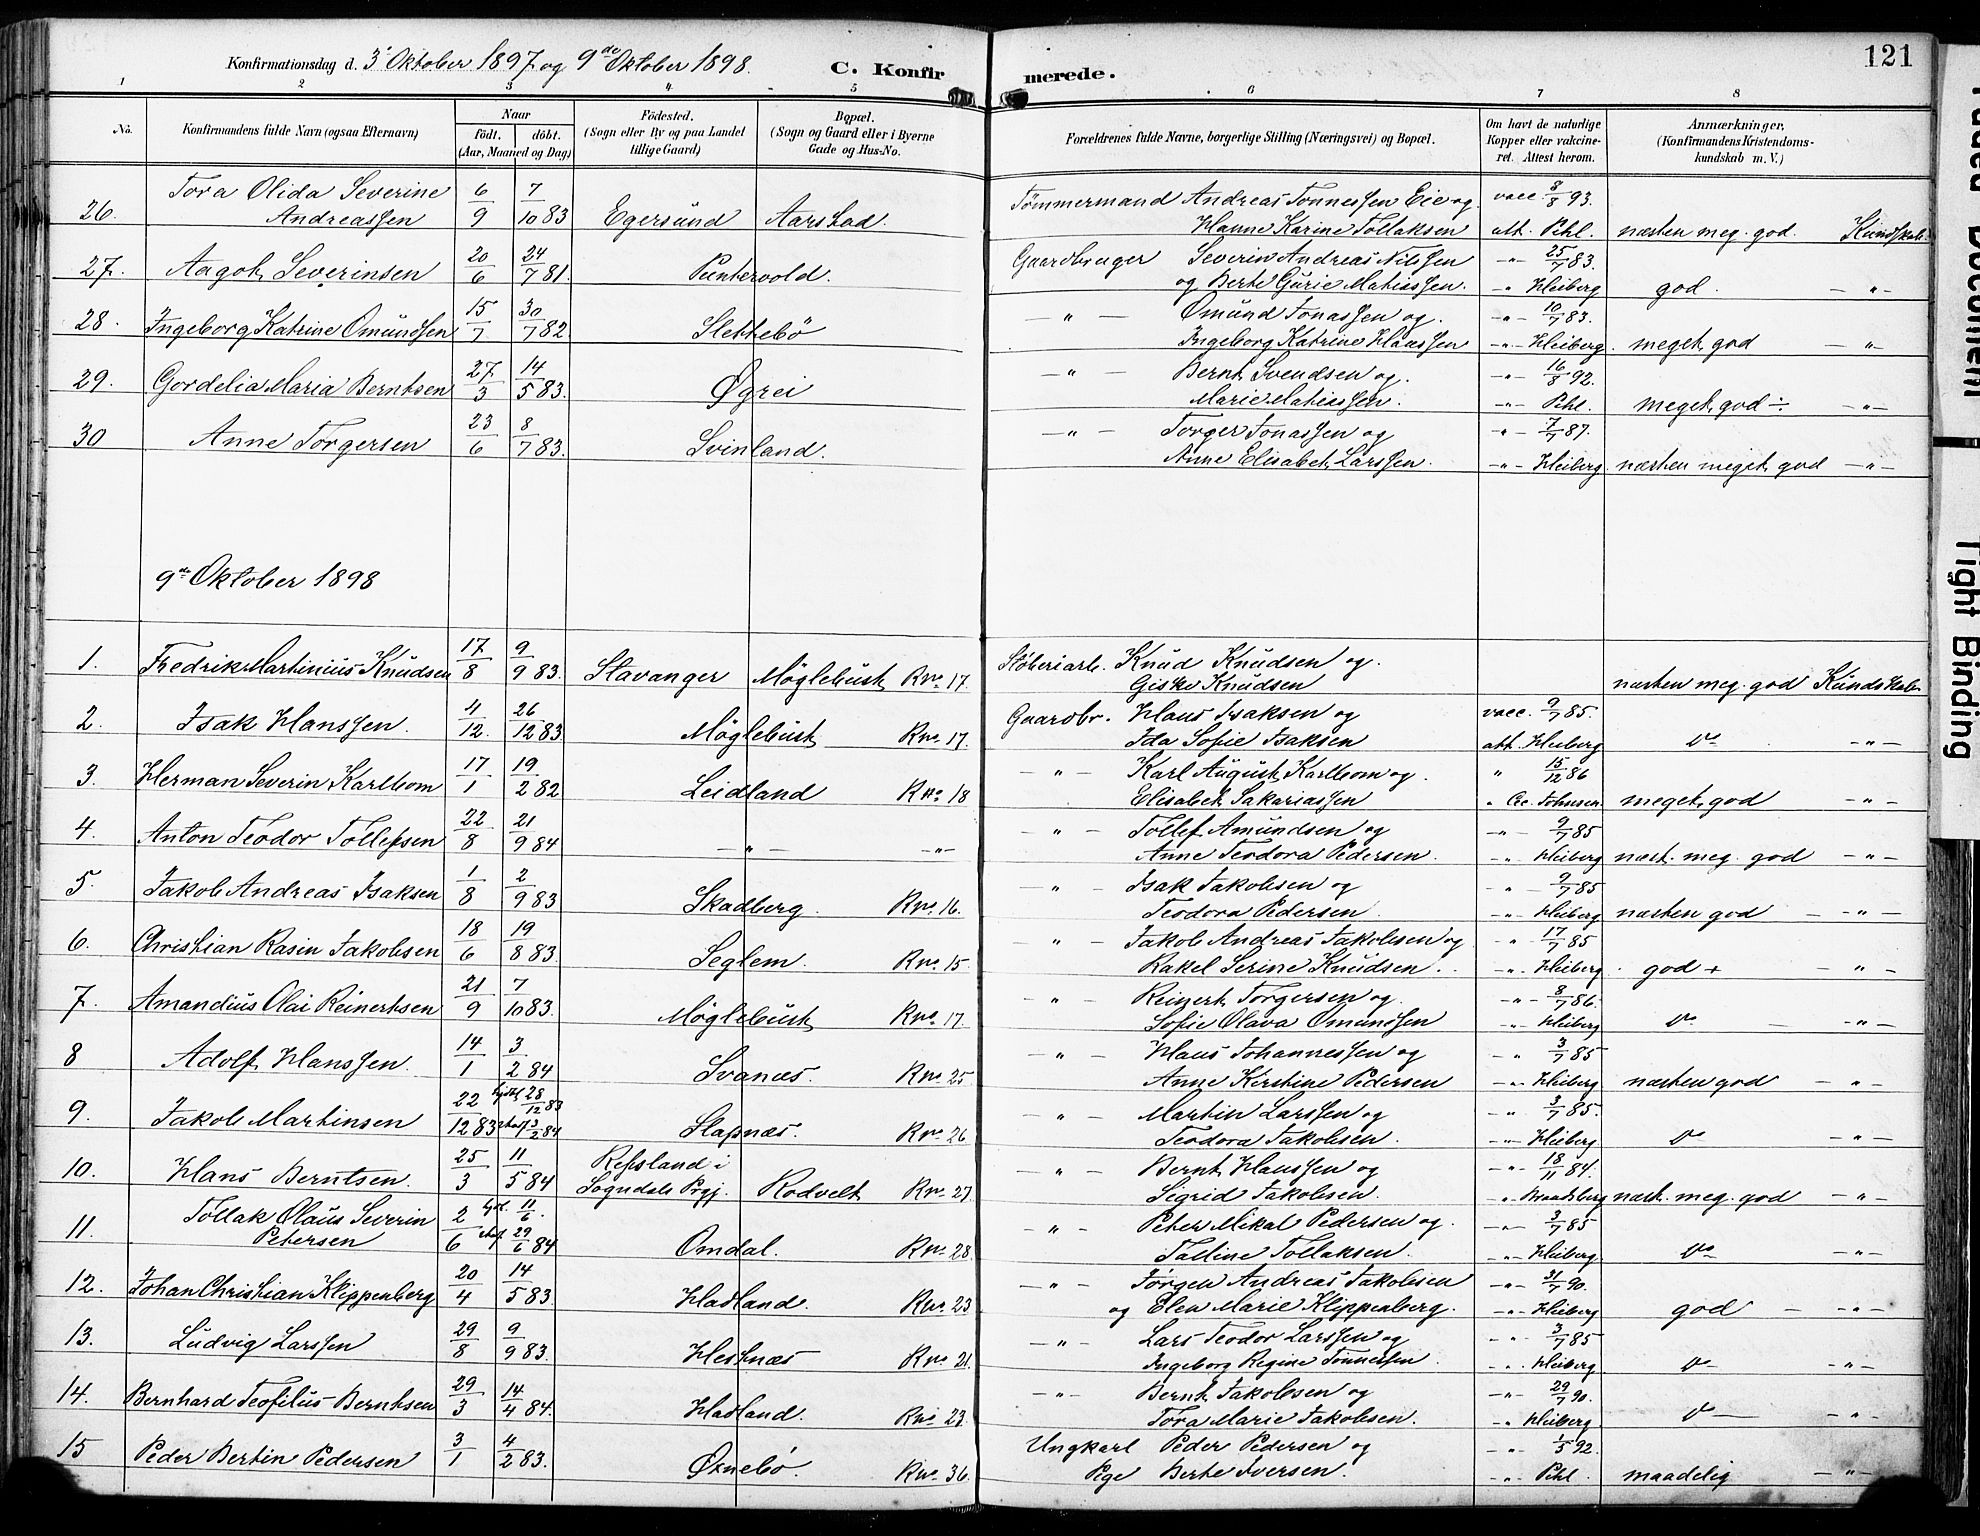 Konfirmationsdag d. 3' Oktober 1897 og 9de Oktober 1898. C. Konfirmerede. 121
1 2 3 4 5 6 7 8
No. Konfirmandens fulde Navn (ogsaa Efternavn) Naar født. døbt. (Aar, Maaned og Dag) Fødested. (Sogn eller By og paa Landet tillige Gaard) Bopæl. (Sogn og Gaard eller i Byerne Gade og Hus-No. Forældrenes fulde Navne, borgerlige Stilling (Næringsvei) og Bopæl. Om havt de naturlige Kopper eller vakcineret. Attest herom. Anmærkninger, (Konfirmandens Kristendomskundskab m. V.)
26. Tora Olida Severine Andreassen 6/9 7/10 83 Egersund Aarstad. Tømmermand Andreas Tønnessen Eie og vacc. 8/8 93.
Hanne Karine Tollaksen att. Pihl. næsten meg. god. Kundskab.
27. Aagot Severinsen 20/6 24/7 81. Puntervold. Gaardbruger Severin Andreas Nilssen -"- 25/7 83.
og Berte Gurie Matiassen. -"- Heiberg god. -"-
28. Ingeborg Katrine Omundsen 15/7 30/7 82 Slettebö -"- Ømund Jonassen og. -"- 10/7 83.
Ingeborg Katrine Hanssen -"- Heiberg. meget god -"-
29. Gordelia Maria Berntsen 27/3 14/5 83. Øgrei -"- Bernt Svendsen og. -"- 16/8 92.
Marie Matiassen. -"- Pihl. meget god ÷ -"-
30 Anne Torgersen 23/6 8/7 83. Svinland. -"- Torger Jonassen og -"- 7/7 87.
Anne Elisabet Larssen. -"- Heiberg. næsten meget god -"-
9de Oktober 1898
1. Fredrik Martinius Knudsen 17/8 9/9 83. Stavanger Møglebust Rno 17. Støberiarb. Knud Knudsen og.
Giske Knudsen næsten meg. god Kundskab
2. Isak Hanssen. 4/12. 26/12 83 Møglebust Rno 17. Gaardbr. Hans Isaksen og vacc. 9/7 85.
Ida Sofie Isaksen att. Heiberg do -"-
3. Herman Severin Karlbom 17/1 19/2 82 Leidland Rno 18 -"- Karl August Karlbom og. " 15/12 86
Elisabet Sakariassen " Johnsen meget god -"-
4. Anton Teodor Tollefsen 22/8 21/9 84 -"- -"- -"- Tollef Amundsen og -"- 9/7 85
Anne Teodora Pedersen. -"- Heiberg næst. meg. god -"-
5. Jakob Andreas Isaksen 1/8 2/9 83 Skadberg. Rno 16. -"- Isak Jakobsen og -"- 9/7 85
Teodora Pedersen. -"- Heiberg næsten god -"-
6. Christian Rasin Jakobsen 18/6 19/8 83. Seglem. Rno 15. -"- Jakob Andreas Jakobsen og -"- 17/7 85
Rakel Serine Knudsen. -"- Heiberg. god + -"-
7. Amandius Olai Reinertsen 21/9 7/10 83. Møglebust Rno 17. -"- Reinert Torgersen og. -"- 8/7 86.
Sofie Olava Omundsen -"- Heiberg do -"-
8 Adolf Hanssen. 14/1 3/2 84 Svanæs. Rno 25 -"- Hans Johannessen og -"- 3/7 85
Anne Kirstine Pedersen -"- Heiberg næsten god -"-
9. Jakob Martinsen 22/12 83 28/12 83 3/2 84 Slapnæs. Rno 26 -"- Martin Larssen og -"- 3/7 85.
Teodora Jakobsen. -"- Heiberg do -"-
10. Hans Berntsen. 25/3 11/5 84 Refsland i Sogndals Prgj. Rodvelt Rno 27. -"- Bernt Hanssen og -"- 18/11 84.
Sigrid Jakobsen. næst. meg. god -"-
11. Tollak Olaus Severin Petersen 2/6 11/6. 29/6 84 Omdal. Rno 28. -"- Peter Mikal Pedersen og. -"- 3/7 85
Talline Tollaksen. -"- Heiberg. do -"-
12. Johan Christian Klippenberg 20/4 14/5 83. Hadland. Rno 23 -"- Jørgen Andreas Jakobsen -"- 31/7 90.
og Elen Marie Klippenberg. -"- Heiberg god -"-
13. Ludvig Larssen 29/8 9/9 83. Hestnæs Rno 21. -"- Lars Teodor Larssen og -"- 3/7 85
Ingeborg Regine Tønnessen. -"- Heiberg do -"-
14. Bernhard Teofilus Berntsen 29/3 14/4 84. Hadland. Rno 23. -"- Bernt Jakobsen og -"- 29/7 90.
Tora Marie Jakobsen. -"- Heiberg. do -"-
15 Peder Bertin Pedersen 3/1 4/2 83. Øxnebø. Rno 36. Ungkarl Peder Pedersen og -"- 1/5 92.
Pige Berte Iversen. -"- Pihl. maadelig -"-
Faded Document
Tight Binding